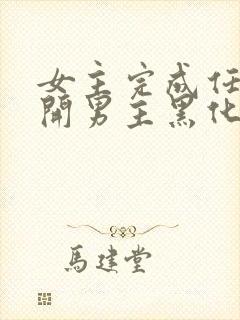 女主完成任
開男主黑化
馬建堂